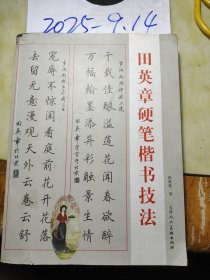 2025-9.14
田英章硬笔楷书技法
千载佳酿溢莲花闻春欲醉
万幅翰墨添异彩触景生情
田英章书于北京
宠辱不惊闲看庭前花开花落
去留无意漫观天外云卷云舒
田英章于北京
天津人民美术出版社